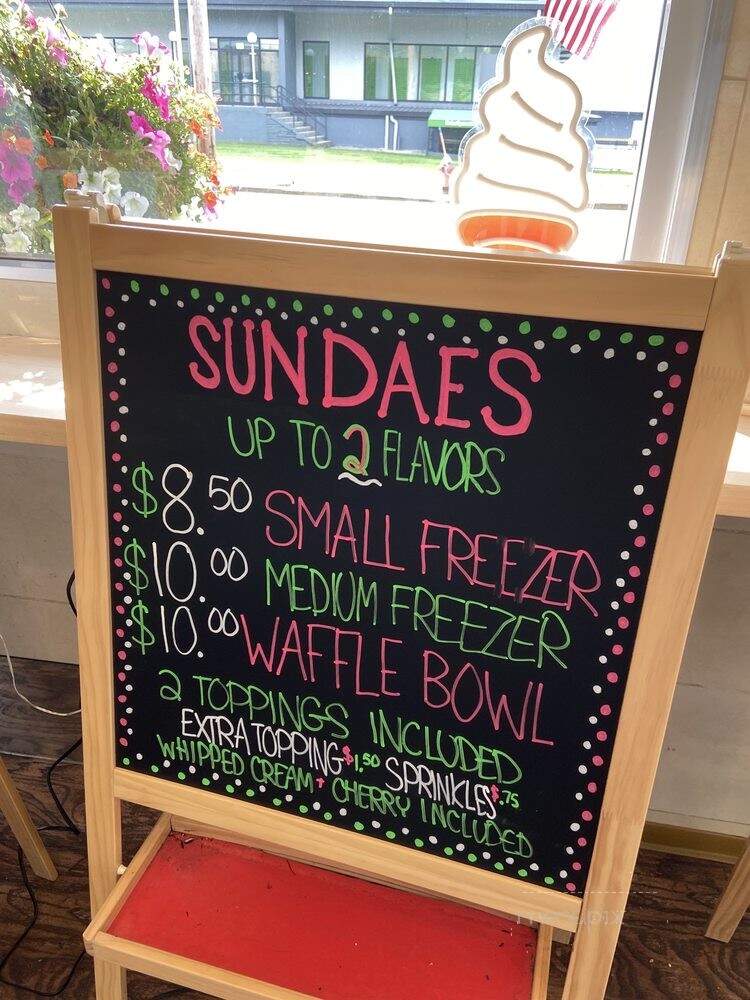 SUNDAES
UP TO 2 FLAVORS
$8.50 SMALL FREEZER
$10.00 MEDIUM FREEZER
$10.00 WAFFLE BOWL
2 TOPPINGS INCLUDED
EXTRA TOPPING $1.50 SPRINKLES $.75
WHIPPED CREAM + CHERRY INCLUDED